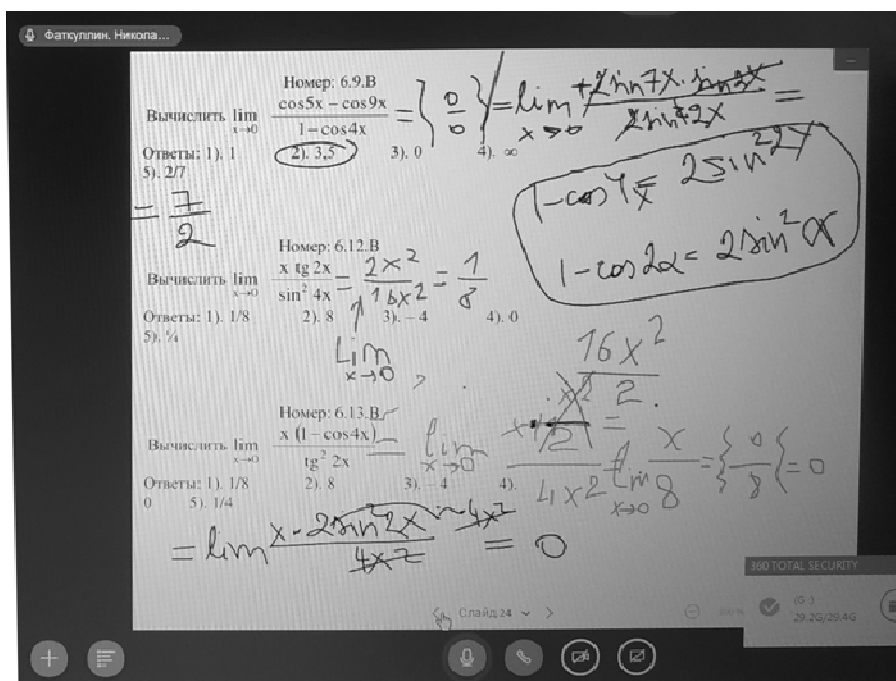 Фаткуллин. Никола...
Номер: 6.9.В
Вычислить lim x→0 (cos5x − cos9x)/(1 − cos4x) = {0/0} = lim x→0 +2sin7x·sin2x / 2sin²2x =
Ответы: 1). 1 2). 3,5 3). 0 4). ∞
5). 2/7
= 7/2
1−cos4x = 2sin²2x
1−cos2α = 2sin²α
Номер: 6.12.В
Вычислить lim x→0 x tg 2x / sin² 4x = 2x²/16x² = 1/8
Ответы: 1). 1/8 2). 8 3). − 4 4). 0
5). ¼
lim x→0
16x²/2
Номер: 6.13.В
Вычислить lim x→0 x (1 − cos4x) / tg² 2x = lim x→0
4x²
= lim x→0 x/8 = {0/8} = 0
Ответы: 1). 1/8 2). 8 3). − 4 4).
0 5). 1/4
= lim x·2sin²2x / 4x² = 0
~4x²
360 TOTAL SECURITY
(G:)
29.2G/29.4G
Слайд 24